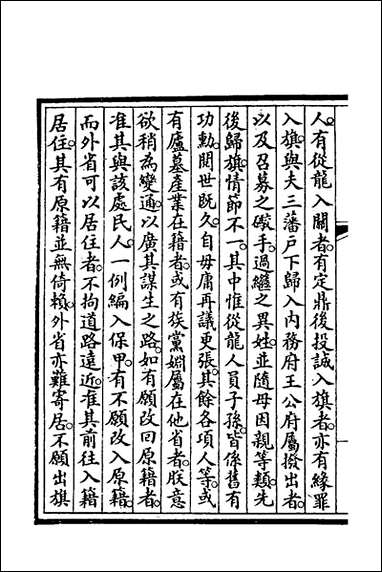 人。有從龍入關者。有定鼎後投誠入旗者。亦有緣罪
入旗。與夫三藩戶下歸入內務府王公府屬撥出者。
以及召募之礮手。過繼之異姓。並隨母因親等類。先
後歸旗。情節不一。其中惟從龍人員子孫。皆係舊有
功勳。閱世既久。自毋庸再議更張。其餘各項人等。或
有廬墓產業在籍者。或有族黨姻屬在他省者。朕意
欲稍為變通。以廣其謀生之路。如有願改回原籍者。
准其與該處民人。一例編入保甲。有不願改入原籍。
而外省可以居住者。不拘道路遠近。准其前往入籍
居住。其有原籍並無倚賴。外省亦難寄居。不願出旗